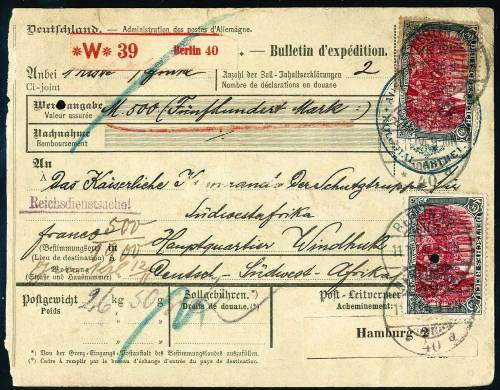 Deutschland. — Administration des postes d'Allemagne.
*W* 39 Berlin 40 *. — Bulletin d'expédition.
Anbei
Ci-joint
Anzahl der Zoll-Inhaltserklärungen 2
Nombre de déclarations en douane
Wertangabe M. 500 (Fünfhundert Mark.)
Valeur assurée
Nachnahme
Remboursement
An
À
Das Kaiserliche Kommando der Schutztruppe für
Reichsdienstsache!
Südwestafrika
franco 500
(Bestimmungsort) in
(Lieu de destination) à
Hauptquartier Windhuk
Wohnung
(Straße und Hausnummer)
Deutsch-Südwest-Afrika
Postgewicht kg
Poids
Zollgebühren.*)
Droits de douane.(*)
Post-Leitvermerk
Acheminement:
Hamburg 2
*) Von der Grenz-Eingangs-Postanstalt des Bestimmungslandes auszufüllen.
(*) Cadre à remplir par le bureau d'échange d'entrée du pays de destination.
DEUTSCHES REICH
DEUTSCHES REICH
BERLIN
40 a